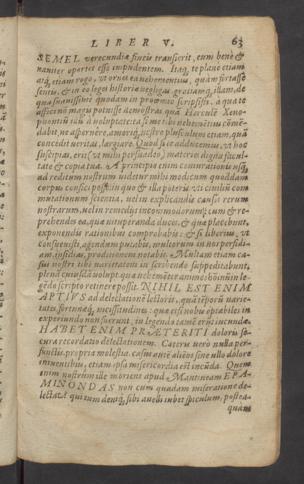 LIBER V. 63
SEMEL verecundiæ fineis transierit, eum benè &
nauiter oportet esse impudentem. Itaq; te planè etiam
atq; etiam rogo, vt ornes ea vehementius, quàm fortasse
sentis, & in eo leges historiæ negligas: gratiamq; illam, de
qua suauissimè quodam in proœmio scripsisti, a qua te
affici non magis potuisse demonstras quàm Herculē Xeno-
phontiū illū à voluptate: ea, si me tibi vehemētius cōmē-
dabit, ne aspernêre, amoriq; nostro plusculum etiam, quā
concedit veritas, largiare. Quod si te adducemus, vt hoc
suscipias, erit (vt mihi persuadeo) materies digna facul-
tate & copia tua. A principio enim coniurationis usq;
ad reditum nostrum videtur mihi modicum quoddam
corpus confici posse: in quo & illa poteris vti ciuiliū com
mutationum scientia, vel in explicandis causis rerum
nouarum, vel in remediis incommodorum: cum & re-
prehendes ea, quæ vituperanda duces, & quæ placebunt,
exponendis rationibus comprobabis: & si liberius, vt
consuesti, agendum putabis, multorum in nos perfidi-
am, insidias, proditionem notabis. Multam etiam ca-
sus nostri tibi varietatem in scribendo suppeditabunt,
plenā cuiusdā volupt. quæ vehemēter animos hominū in le-
gēdo scripto retinere possit. NIHIL EST ENIM
APTIVS ad delectationē lectoris, quā tēporū varie-
tates fortunæq; vicissitudines: quæ etsi nobis optabiles in
experiundo non fuerunt, in legendo tamē erūt iucundæ.
HABET ENIM PRÆTERITI doloris se-
cura recordatio delectationem. Cæteris verò nulla per-
functis propria molestia, casus autē aliēos sine ullo dolore
intuentibus, etiam ipsa misericordia est iucūda. Quem
enim nostrûm ille moriens apud Mantineam EPA-
MINONDAS non cum quadam miseratione de-
lectat? qui tum deniq; sibi auelli iubet spiculum, postea-
quàm